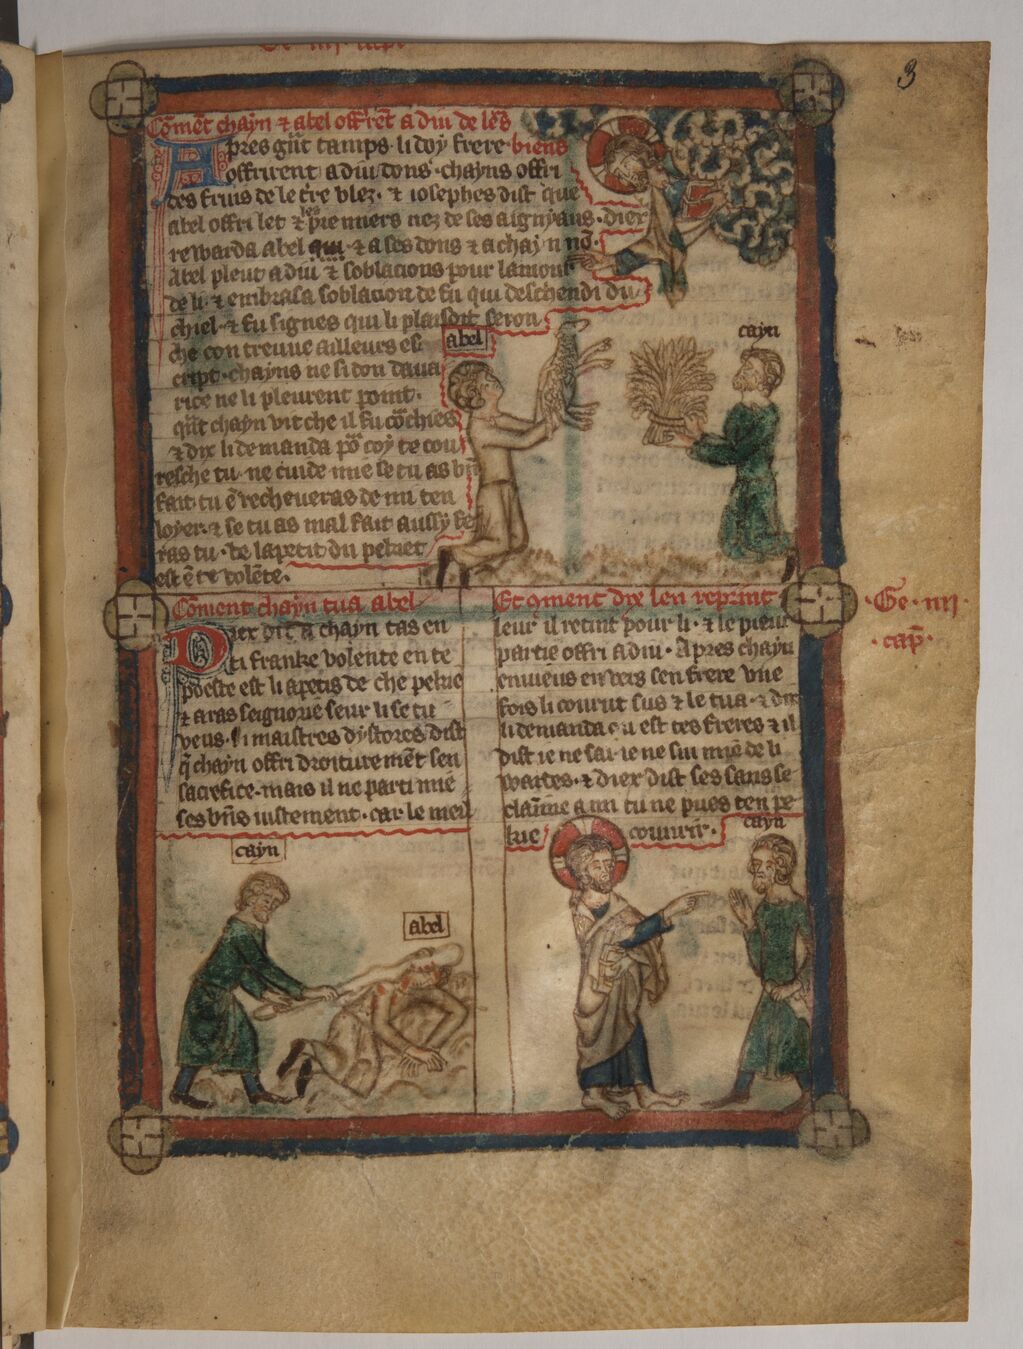 3
Cōmēt chayn ⁊ abel offrēt a diu de lēs
Apres gūt tamps li doy frere biens
offrirent a diu dons · chayns offri
des fruis de le tre blez · ⁊ iosephes dist que
abel offri let ⁊ les premiers nez de ses aignyaus · diex
rewarda abel qui ⁊ a ses dons ⁊ a chayn nō ·
Abel pleut a diu ⁊ soblacions pour lamour
de li · ⁊ embrasa soblacion de fu qui deschendi du
chiel · ⁊ fu signes qui li plaisoit seron
che con treuue ailleurs es
cript · chayns ne si don daua
rice ne li pleurent point ·
qūt chayn vit che il fu cōchies
⁊ dix li demanda pō coy te cou
resche tu · ne cuide mie se tu as bn
fait tu ē recheueras de mi ten
loyer · ⁊ se tu as mal fait aussy fe
ras tu · de lapetit du pechiet
est ē te volēte ·
abel
cayn
Coment chayn tua abel
Diex dit a chayn tas en
ti franke volente en te
poeste est li apetis de che pechie
⁊ aras seignorie seur li se tu
veus · li maistres dystores dist
q̄ chayn offri droituremēt sen
sacrefice · mais il ne parti mie
ses bn̄s iustement · car le meil
cayn
abel
Et cment dix len reprint
leur il retint pour li · ⁊ le pieur
partie offri a diu · Apres chayn
enuieus enuers sen frere vne
fois li courut sus ⁊ le tua · ⁊ dix
li demanda ou est tes freres ⁊ il
dist ie ne sai · ie ne sui mie de li
wardes · ⁊ diex dist ses sans se
claīme a mi tu ne pues ten pe
kie couurir ·
cayn
· Ge · iiij ·
· cap̄ ·